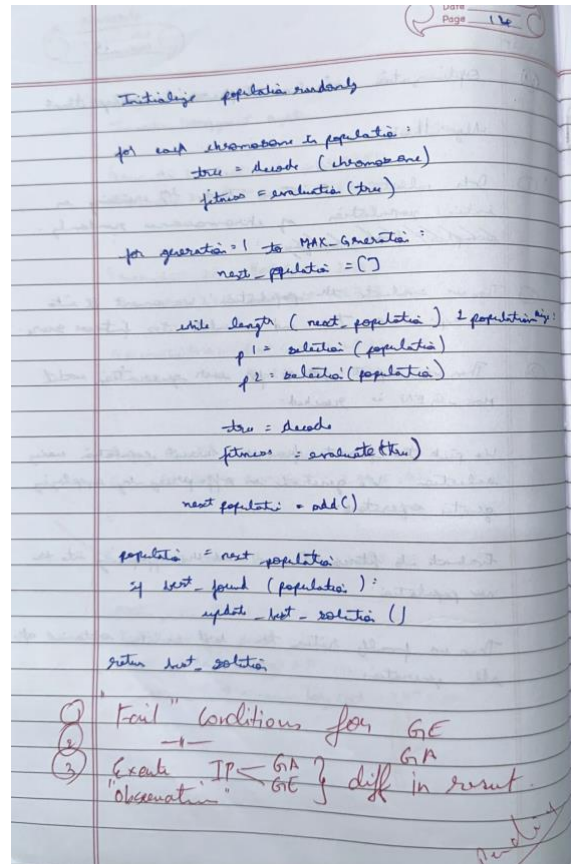 Date
Page 14
Initialize population randomly
for each chromosome in population :
tree = decode (chromosome)
fitness = evaluation (tree)
for generation = 1 to MAX_Generation :
next_population = []
while length ( next_population ) < population size :
p1 = selection (population)
p2 = selection (population)
tree = decode
fitness = evaluate (tree)
next population = add()
population = next_population
if best_found (population) :
update_best_solution ()
return best_solution
① "Fail" conditions for GE
② —〃— GA
③ Execute IP < GA GE } diff in result.
"Observation"